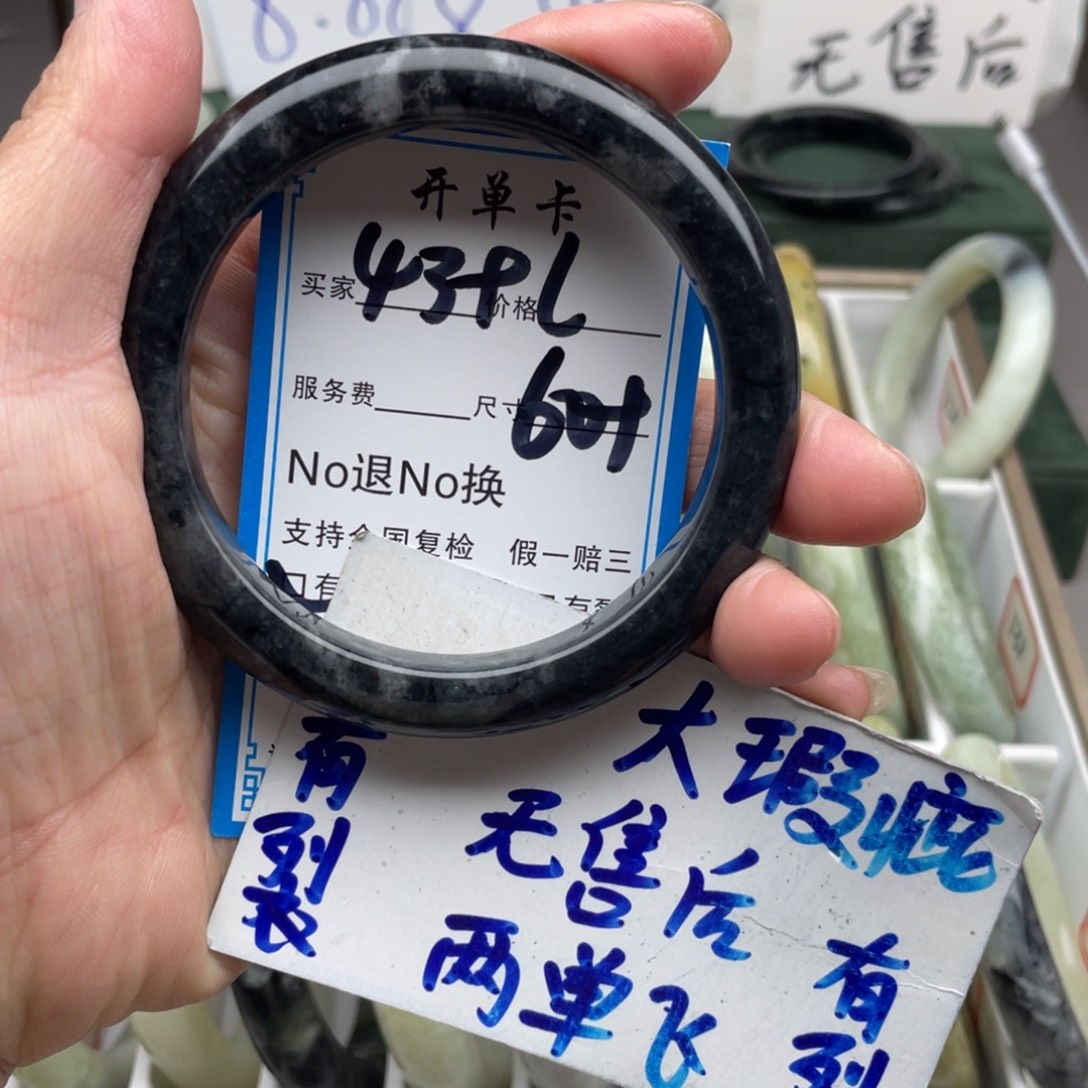 无售后
开单卡
买家 价格
服务费 尺寸 601
No退No换
支持全国复检 假一赔三
口有
大瑕疵
有裂
无售后
两单飞
有裂